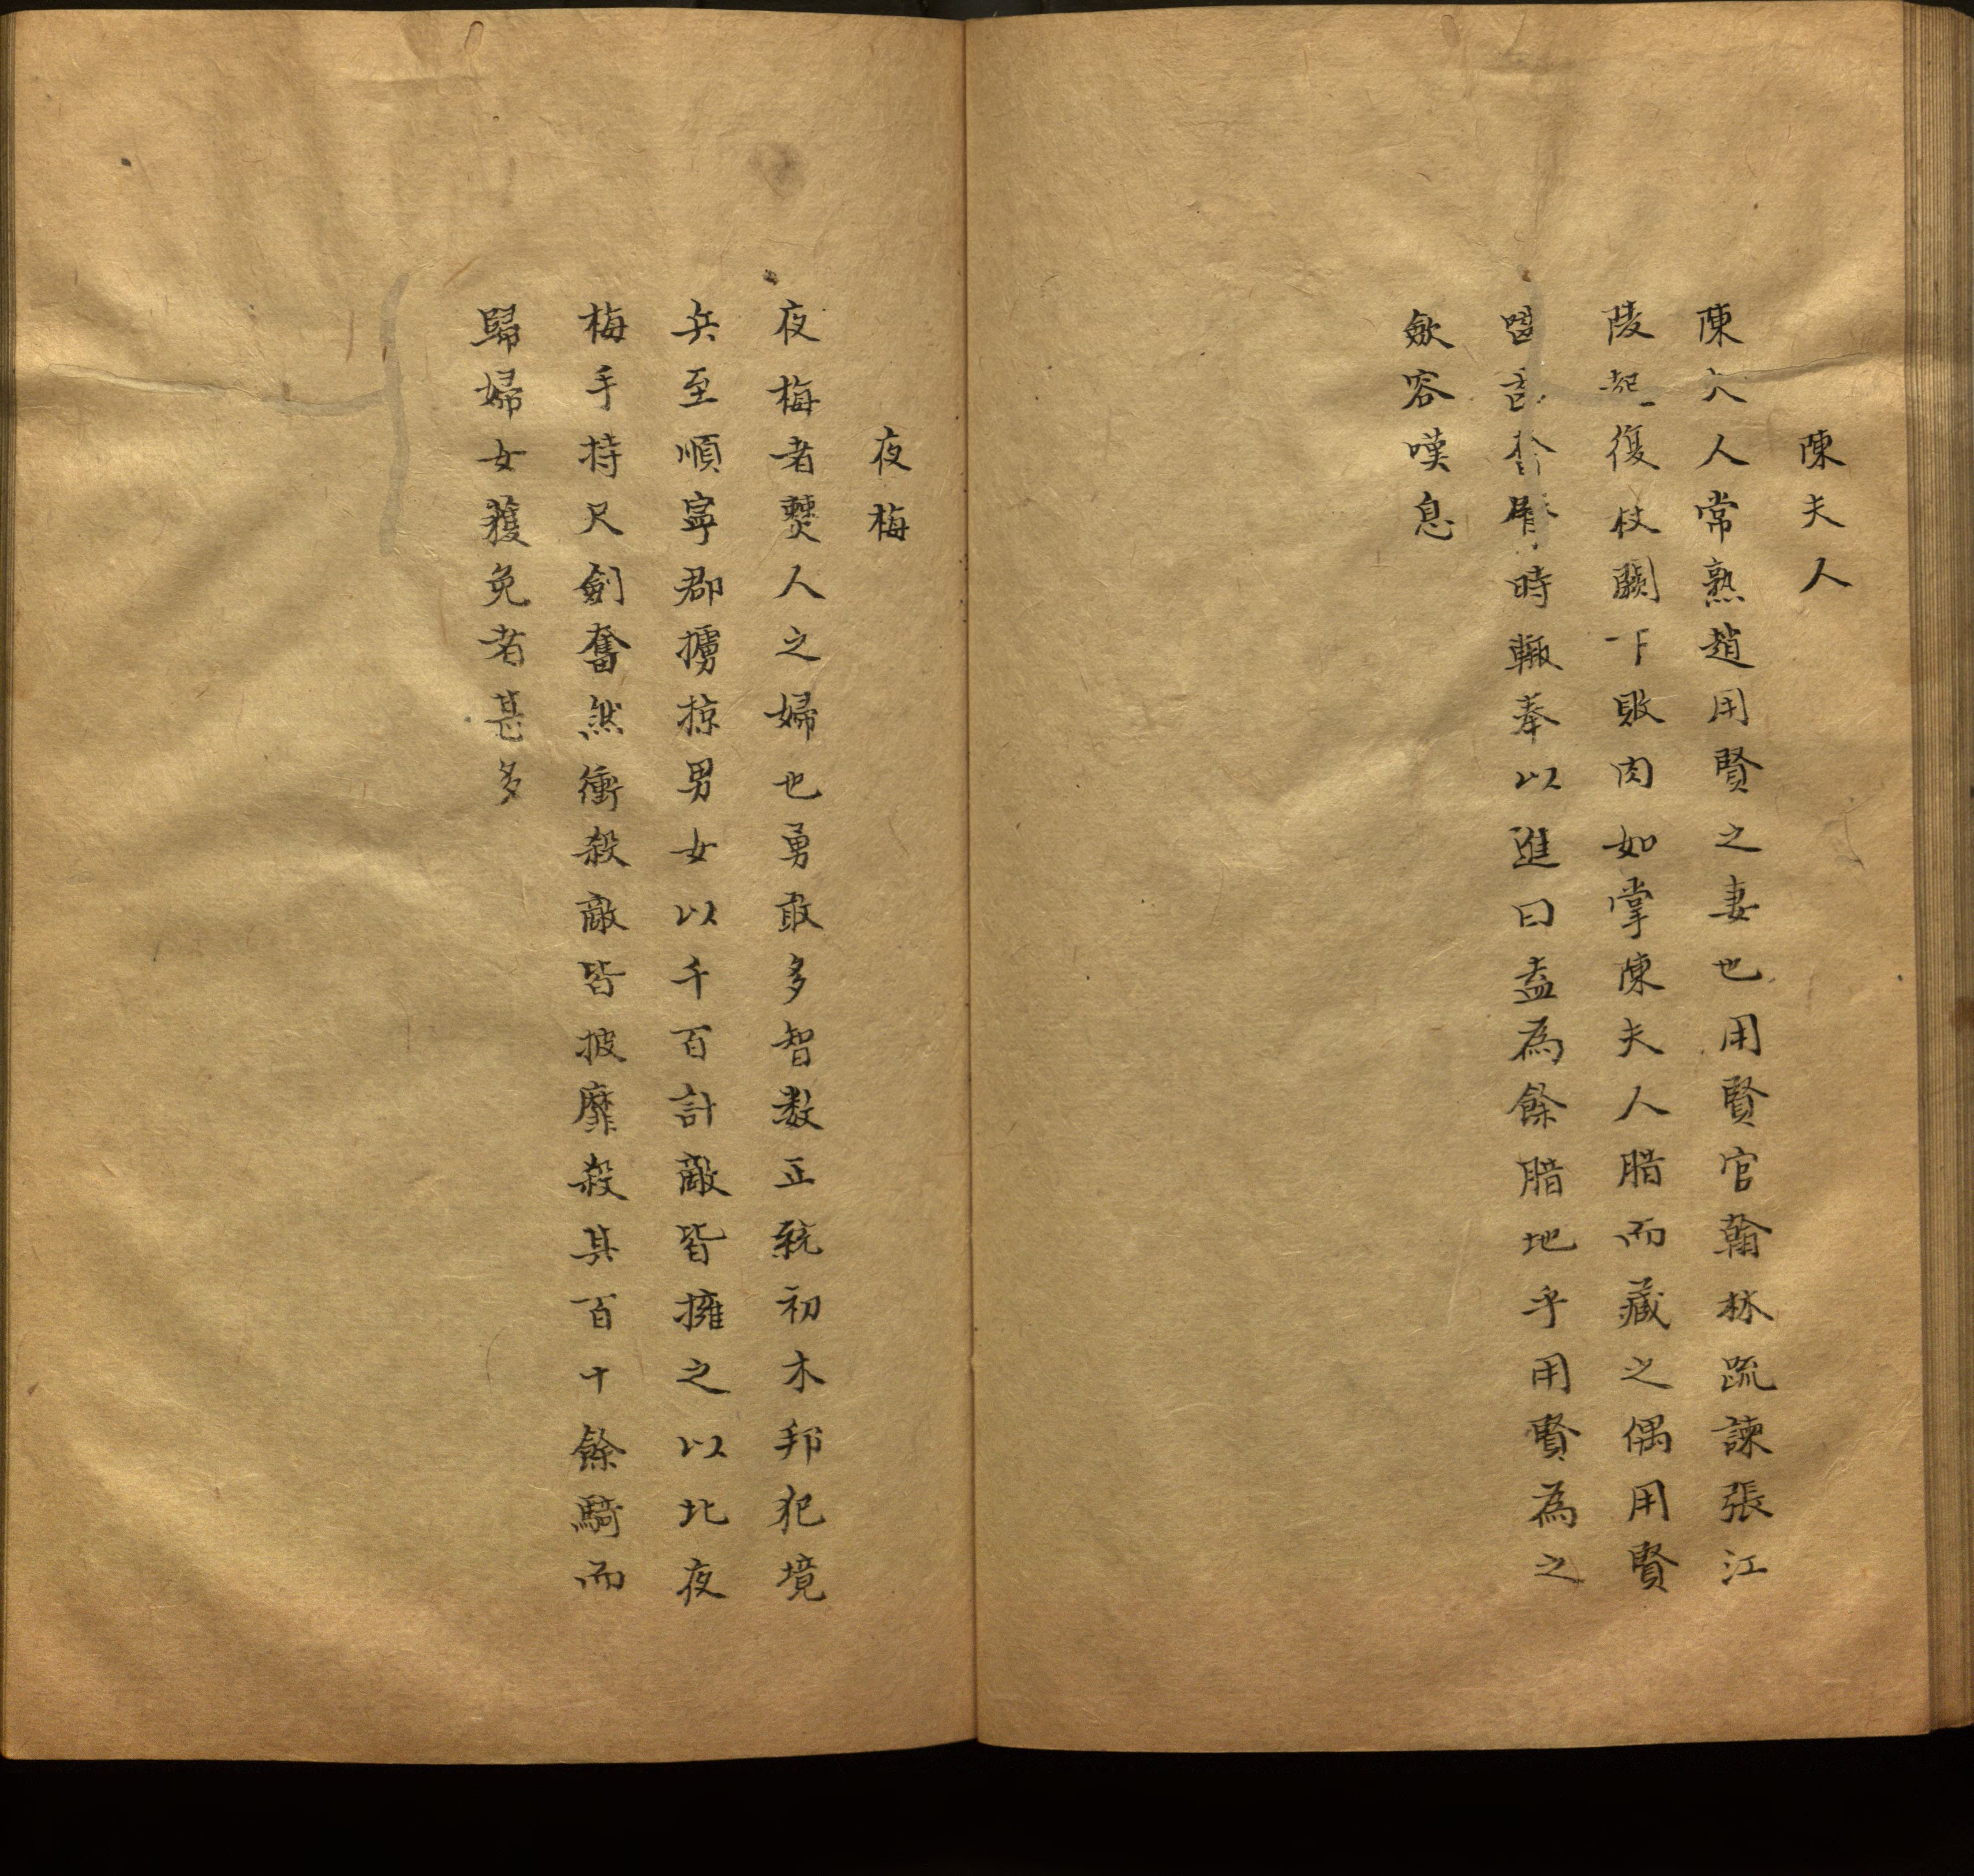 陳夫人
陳夫人常熟趙用賢之妻也用賢官翰林疏諫張江
陵起復杖闕下敗肉如掌陳夫人腊而藏之偶用賢
時輙奉以進曰盍為餘腊地乎用賢為之
歛容嘆息
夜梅
夜梅者僰人之婦也勇敢多智数正統初木邦犯境
兵至順寧郡擄掠男女以千百計敵皆擁之以北夜
梅手持尺劍奮然衝殺敵皆披靡殺其百十餘騎而
歸婦女獲免者甚多